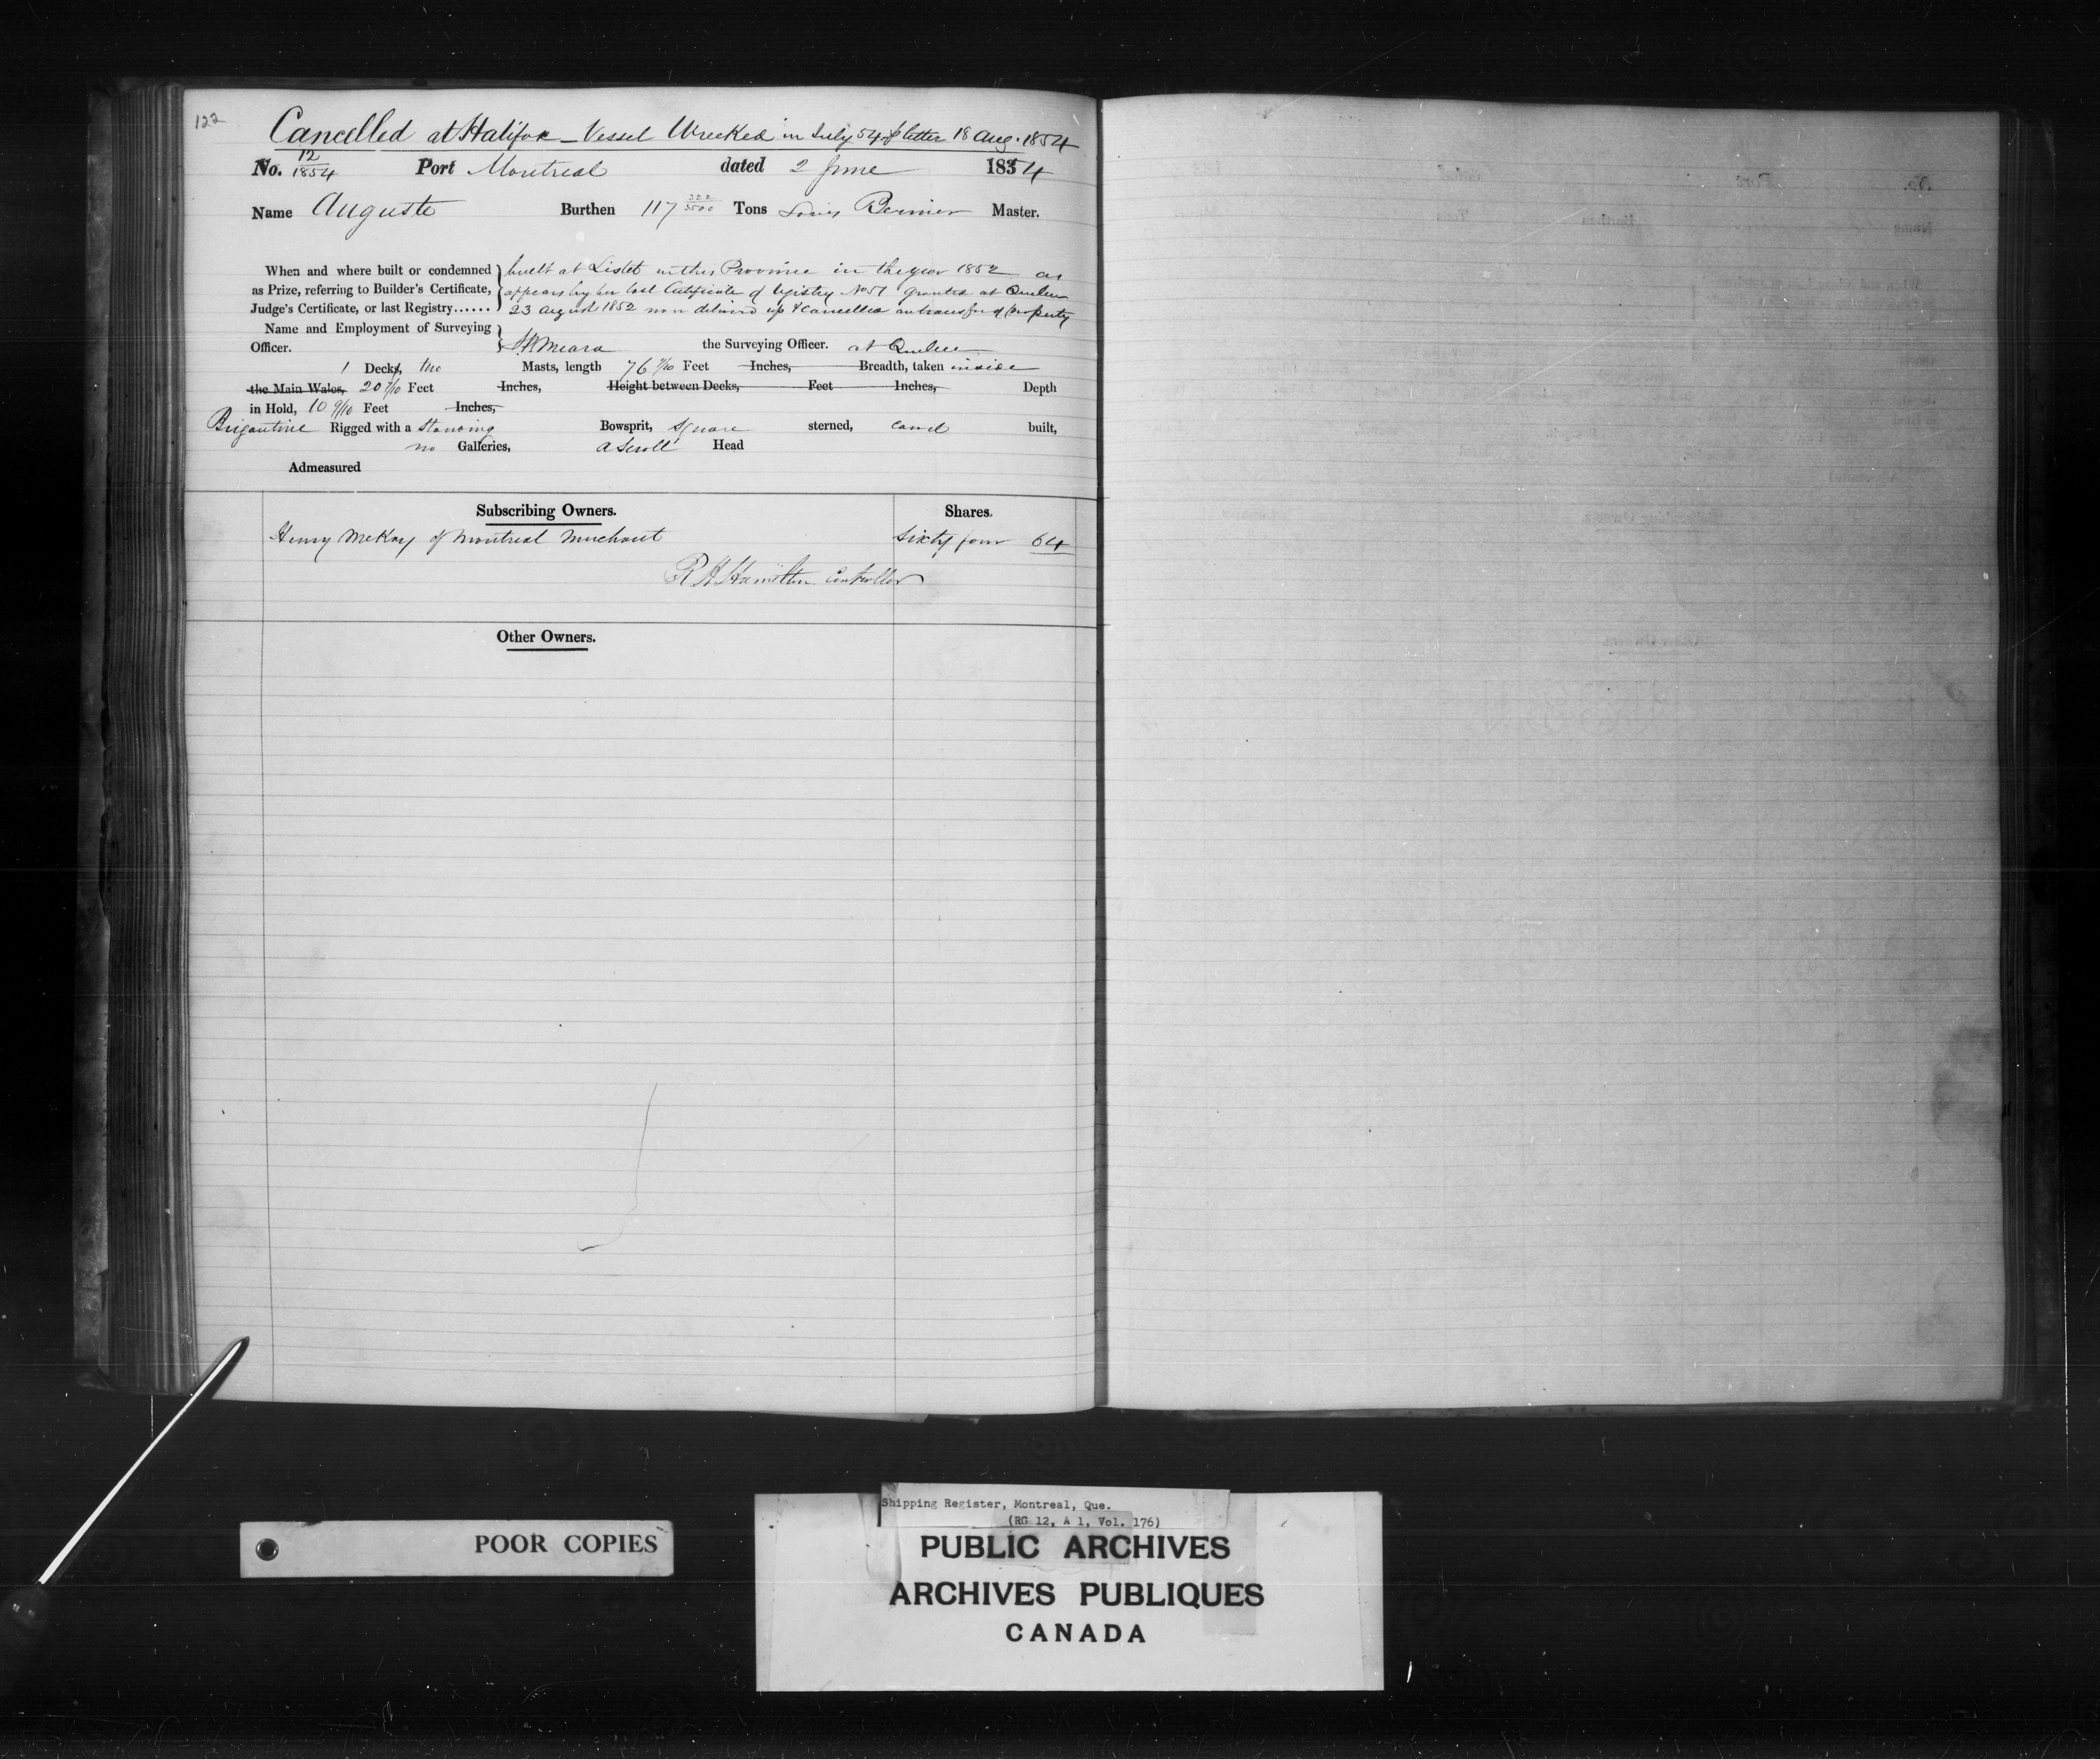 122
Cancelled at Halifax – Vessel Wrecked in July 54 p letter 18 Aug. 1854
No. 12/1854 Port Montreal dated 2 June 1854
Name Auguste Burthen 117 322/3500 Tons Louis Bernier Master.
When and where built or condemned built at Lislet in this Province in the year 1852 as
as Prize, referring to Builder's Certificate, appears by her last Certificate of registry No 57 granted at Quebec
Judge's Certificate, or last Registry...... 23 August 1852 now delivered up & cancelled on transfer of property
Name and Employment of Surveying
Officer. Meara the Surveying Officer. at Quebec
1 Decks, two Masts, length 76 /10 Feet Inches, Breadth, taken inside
the Main Wales, 20 /10 Feet Inches, Height between Decks, Feet Inches, Depth
in Hold, 10 9/10 Feet Inches,
Brigantine Rigged with a standing Bowsprit, square sterned, carvel built,
no Galleries, a scroll Head
Admeasured
Subscribing Owners. Shares.
Henry McKay of Montreal Merchant Sixty four 64
R H Hamilton Controller
Other Owners.
POOR COPIES
Shipping Register, Montreal, Que.
(RG 12, A 1, Vol. 176)
PUBLIC ARCHIVES
ARCHIVES PUBLIQUES
CANADA